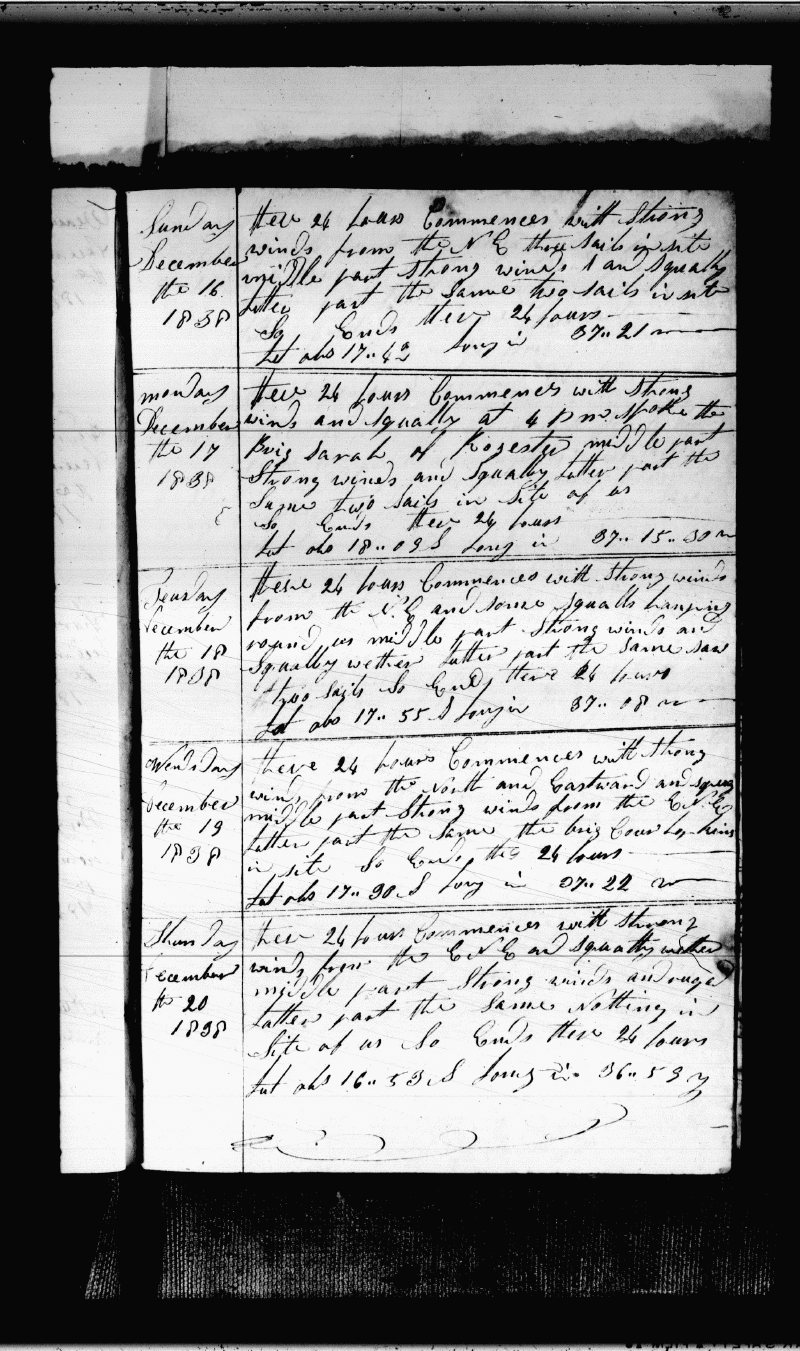 Sunday
December
the 16
1838
thes 24 hours Commences with Strong
winds from the N E three sails in site
middle part strong winds and Squally
latter part the Same two sails in site
So Ends these 24 hours
Lat obs 17.. 42 Long in 37.. 21
monday
December
the 17
1838
these 24 hours Commences with Strong
winds and Squally at 4 pm spoke the
Brig Sarah of Rogester middle part
Strong winds and Squally latter part the
Same two sails in Site of us
So Ends these 24 hours
Lat obs 18.. 09 S Long in 37.. 15.. 30
Teusday
December
the 18
1838
these 24 hours Commences with Strong winds
from the N.E and some Squalls hanging
round us middle part Strong winds and
Squally wether latter part the Same saw
two sails So Ends these 24 hours
Lat obs 17.. 55 S Long in 37.. 08
Wendsday
December
the 19
1838
these 24 hours Commences with Strong
winds from the North and Eastward and
middle part Strong winds from the E.N.E
latter part the Same the brig
in site So Ends this 24 hours
Lat obs 17.. 30 S Long in 37.. 22
Thursday
December
the 20
1838
these 24 hours Commences with Strong
winds from the E N E and Squally wether
middle part Strong winds and
latter part the Same Nothing in
Site of us So Ends these 24 hours
Lat obs 16.. 53 S Long in 36.. 59